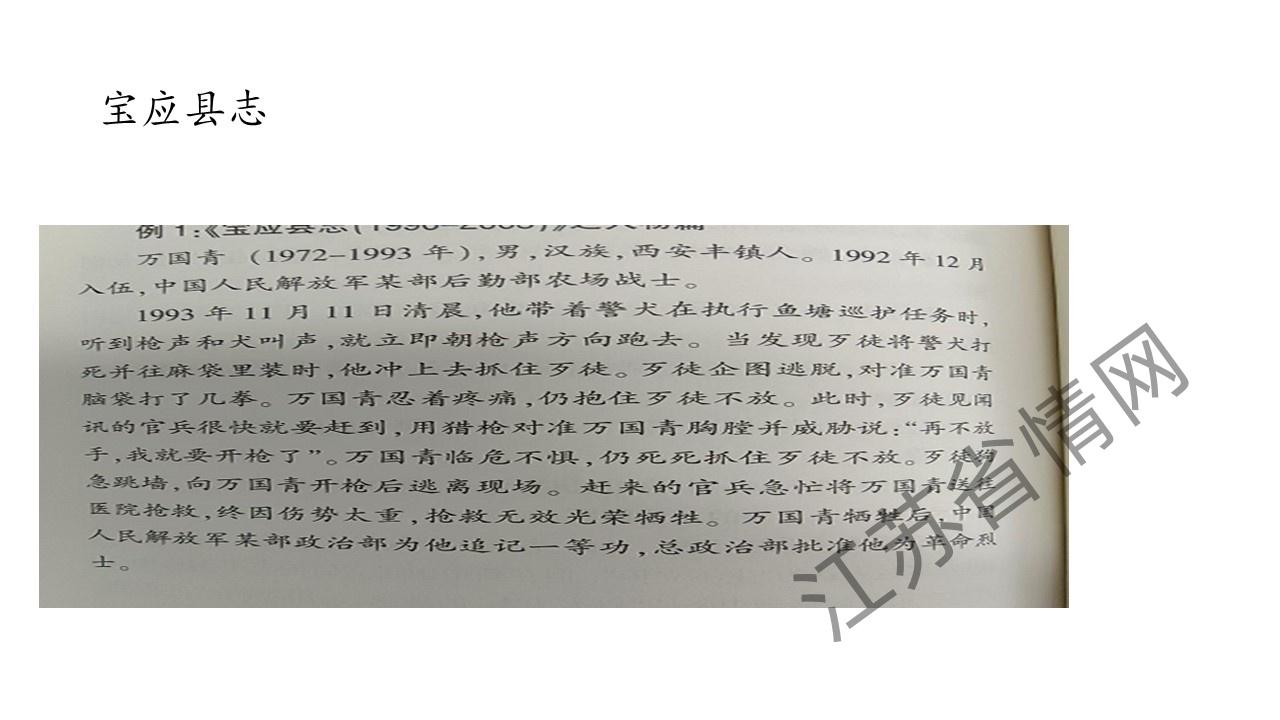 宝应县志
例 1:《宝应县志(1990-2005)》之人物篇
万国青 (1972-1993 年),男,汉族,西安丰镇人。1992 年 12 月
入伍,中国人民解放军某部后勤部农场战士。
1993 年 11 月 11 日清晨,他带着警犬在执行鱼塘巡护任务时,
听到枪声和犬叫声,就立即朝枪声方向跑去。当发现歹徒将警犬打
死并往麻袋里装时,他冲上去抓住歹徒。歹徒企图逃脱,对准万国青
脑袋打了几拳。万国青忍着疼痛,仍抱住歹徒不放。此时,歹徒见闻
讯的官兵很快就要赶到,用猎枪对准万国青胸膛并威胁说:“再不放
手,我就要开枪了”。万国青临危不惧,仍死死抓住歹徒不放。歹徒狗
急跳墙,向万国青开枪后逃离现场。赶来的官兵急忙将万国青送往
医院抢救,终因伤势太重,抢救无效光荣牺牲。万国青牺牲后,中国
人民解放军某部政治部为他追记一等功,总政治部批准他为革命烈
士。
江苏省情网